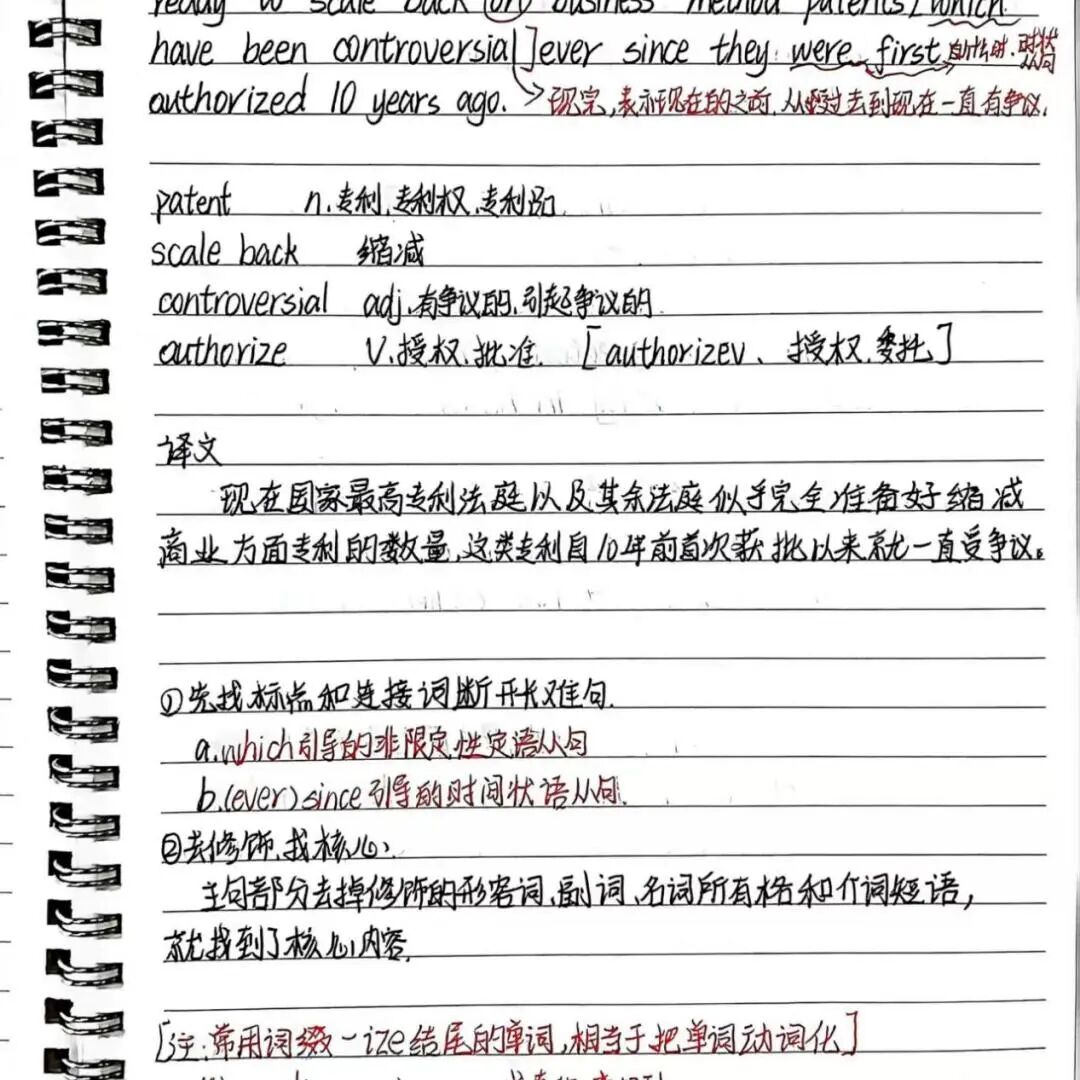 ready to scale back on business method patents, which
have been controversial]ever since they were first 自什么时, 时状从句
authorized 10 years ago. → 现完,表示现在的之前,从过去到现在一直有争议.
patent n.专利,专利权,专利品.
scale back 缩减
controversial adj.有争议的,引起争议的.
authorize v.授权,批准. [authorizev、授权,委托]
译文
现在国家最高专利法庭以及其余法庭似乎完全准备好缩减
商业方面专利的数量,这类专利自10年前首次获批以来就一直受争议。
①先找标点和连接词断开长难句.
a.which引导的非限定性定语从句
b.(ever)since引导的时间状语从句.
②去修饰,找核心.
主句部分去掉修饰的形容词,副词,名词所有格和介词短语,
就找到了核心内容.
[注:常用词缀-ize结尾的单词,相当于把单词动词化]